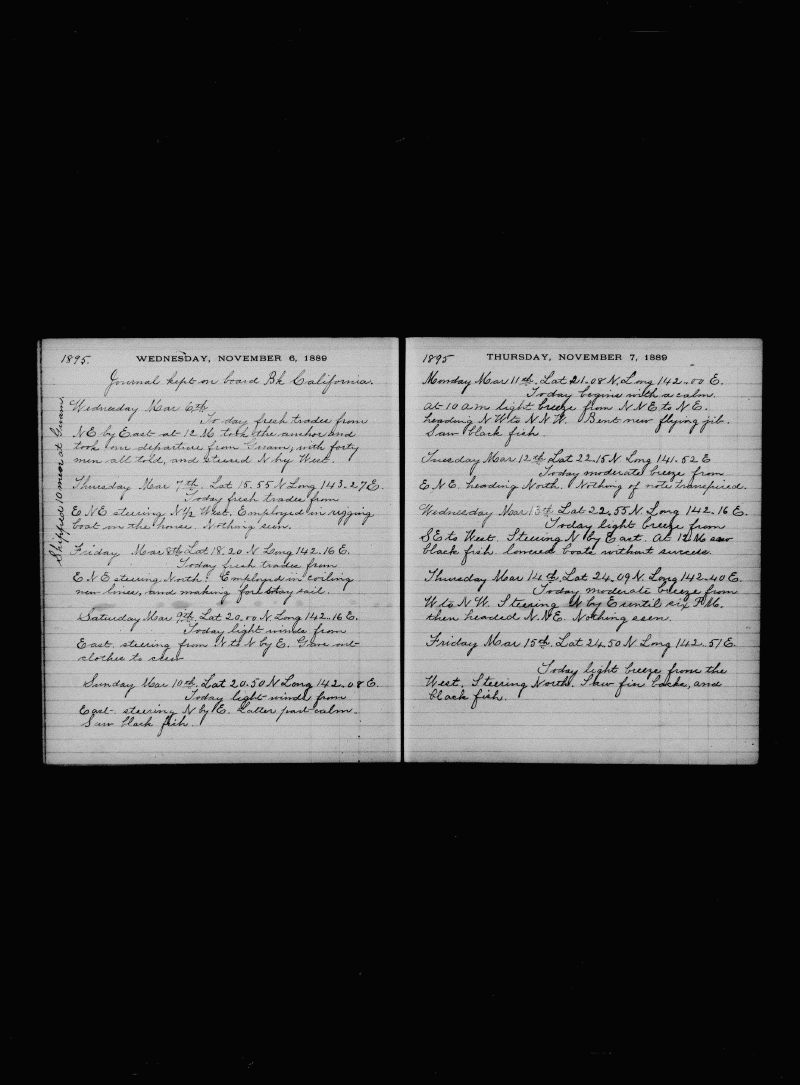 1895. WEDNESDAY, NOVEMBER 6, 1889
Journal kept on board Bk California.
Shipped 10 men at Guam.
Wednesday Mar 6th
To day fresh trades from
NE by East at 12 M took the anchor and
took our departure from Guam, with forty
men all told, and steered N by West.
Thursday Mar 7th. Lat 15.55 N Long 143.27 E.
Today fresh trades from
E N E steering N 1/2 West. Employed in rigging
boat on the house. Nothing seen.
Friday Mar 8th Lat 18.20 N Long 142.16 E.
Today fresh trades from
E N E steering North. Employed in coiling
new lines, and making fore stay sail.
Saturday Mar 9th. Lat 20.00 N Long 142.16 E.
Today light winds from
East. steering from N to N by E. Gave out
clothes to crew
Sunday Mar 10th. Lat 20.50 N Long 142.08 E.
Today light winds from
East. steering N by E. Latter part calm.
Saw black fish.
1895 THURSDAY, NOVEMBER 7, 1889
Monday Mar 11th. Lat 21.08 N. Long 142.00 E.
Today begins with a calm.
At 10 am light breeze from N N E to N E.
heading N W to N N W. Bent new flying jib.
Saw black fish.
Tuesday Mar 12th. Lat 22.15 N Long 141.52 E
Today moderate breeze from
E. N E. heading North. Nothing of note transpired.
Wednesday Mar 13th. Lat 22.55 N. Long 142.16 E.
Today light breeze from
S E to West. Steering N by East. At 12 M saw
black fish. lowered boats without success.
Thursday Mar 14th. Lat 24.09 N. Long 142.40 E.
Today moderate breeze from
W to N W. Steering N by E until six P.M.
then headed N. N E. Nothing seen.
Friday Mar 15th. Lat 24.50 N Long 142.51 E.
Today light breeze from the
West. Steering North. Saw fin backs, and
black fish.